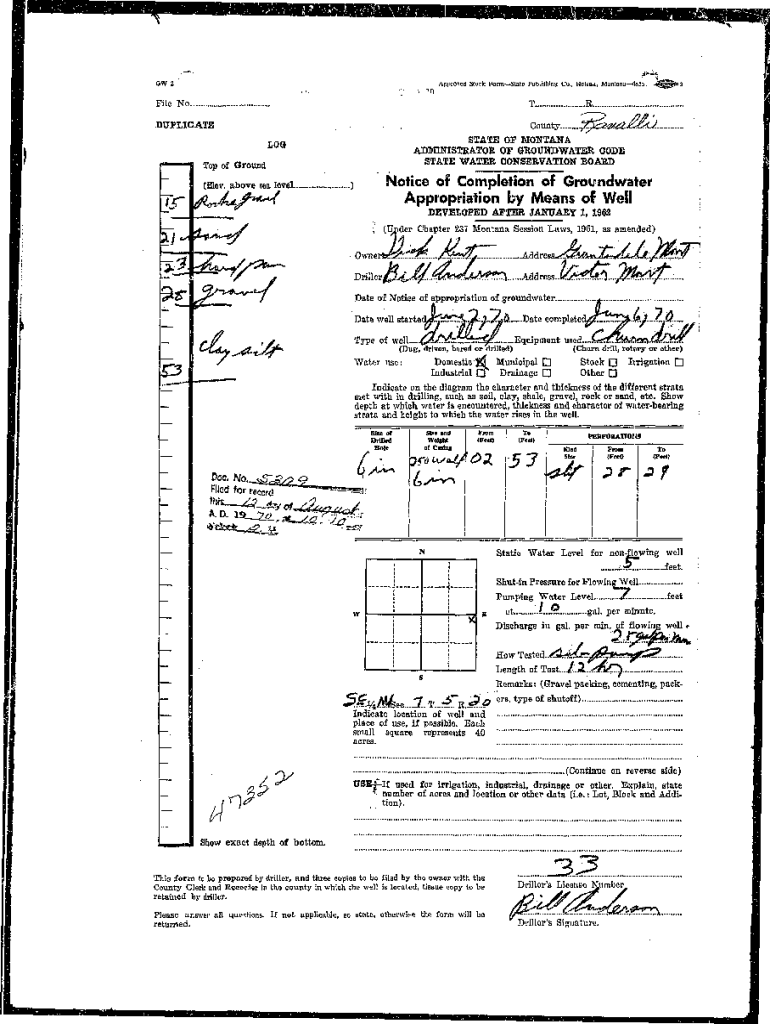 GW 2
Approved Stock Form—State Publishing Co., Helena, Montana
File No.
T. R.
DUPLICATE
County Ravalli
LOG
STATE OF MONTANA
ADMINISTRATOR OF GROUNDWATER CODE
STATE WATER CONSERVATION BOARD
Top of Ground
(Elev. above sea level )
Notice of Completion of Groundwater
Appropriation by Means of Well
DEVELOPED AFTER JANUARY 1, 1962
(Under Chapter 237 Montana Session Laws, 1961, as amended)
15
21 sand
23 hard pan
28 gravel
clay silt
53
Owner Dick Kent Address Grantsdale Mont
Driller Bill Anderson Address Victor Mont
Date of Notice of appropriation of groundwater
Date well started June 2, 70 Date completed June 6, 70
Type of well drilled Equipment used Churn drill
(Dug, driven, bored or drilled) (Churn drill, rotary or other)
Water use: Domestic X Municipal Stock Irrigation
Industrial Drainage Other
Indicate on the diagram the character and thickness of the different strata
met with in drilling, such as soil, clay, shale, gravel, rock or sand, etc. Show
depth at which water is encountered, thickness and character of water-bearing
strata and height to which the water rises in the well.
Size of Drilled Hole
Size and Weight of Casing
From (Feet)
To (Feet)
PERFORATIONS
Kind Size
From (Feet)
To (Feet)
6 in
250 wall 6 in
02
53
slit
28
29
Doc. No. 5209
Filed for record
this 12 day of August
A.D. 1970, at 10:10
o'clock
N
W
E
X
S
Static Water Level for non-flowing well
5 feet.
Shut-in Pressure for Flowing Well
Pumping Water Level 7 feet
at 10 gal. per minute.
Discharge in gal. per min. of flowing well
How Tested pump
Length of Test 12 hr
Remarks: (Gravel packing, cementing, pack-
ers, type of shutoff)
SE 1/4 Sec. 7 T. 5 R. 20
Indicate location of well and
place of use, if possible. Each
small square represents 40
acres.
(Continue on reverse side)
USE—If used for irrigation, industrial, drainage or other. Explain, state
number of acres and location or other data (i.e.: Lot, Block and Addi-
tion).
47352
Show exact depth of bottom.
This form to be prepared by driller, and three copies to be filed by the owner with the
County Clerk and Recorder in the county in which the well is located, tissue copy to be
retained by driller.
Please answer all questions. If not applicable, so state, otherwise the form will be
returned.
33
Driller's License Number
Bill Anderson
Driller's Signature.